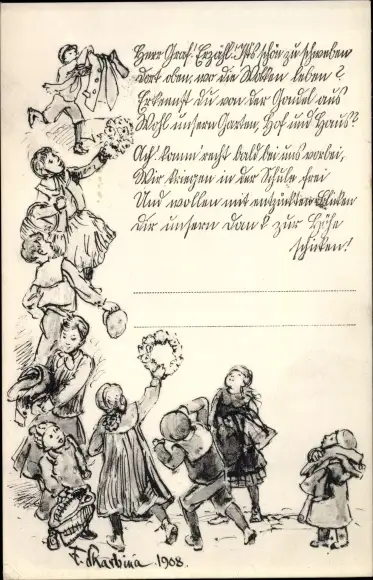 Herr Graf! Erzähl: Ists schön zu schweben
Dort oben, wo die Wolken leben?
Erkennst Du von der Gondel aus
Wohl unsern Garten, Hof und Haus?
Ach komm' recht bald bei uns vorbei,
Wir kriegen in der Schule frei
Und wollen mit entzückten Blicken
Dir unsern Dank zur Höhe
schicken!
F. Skarbina 1908.